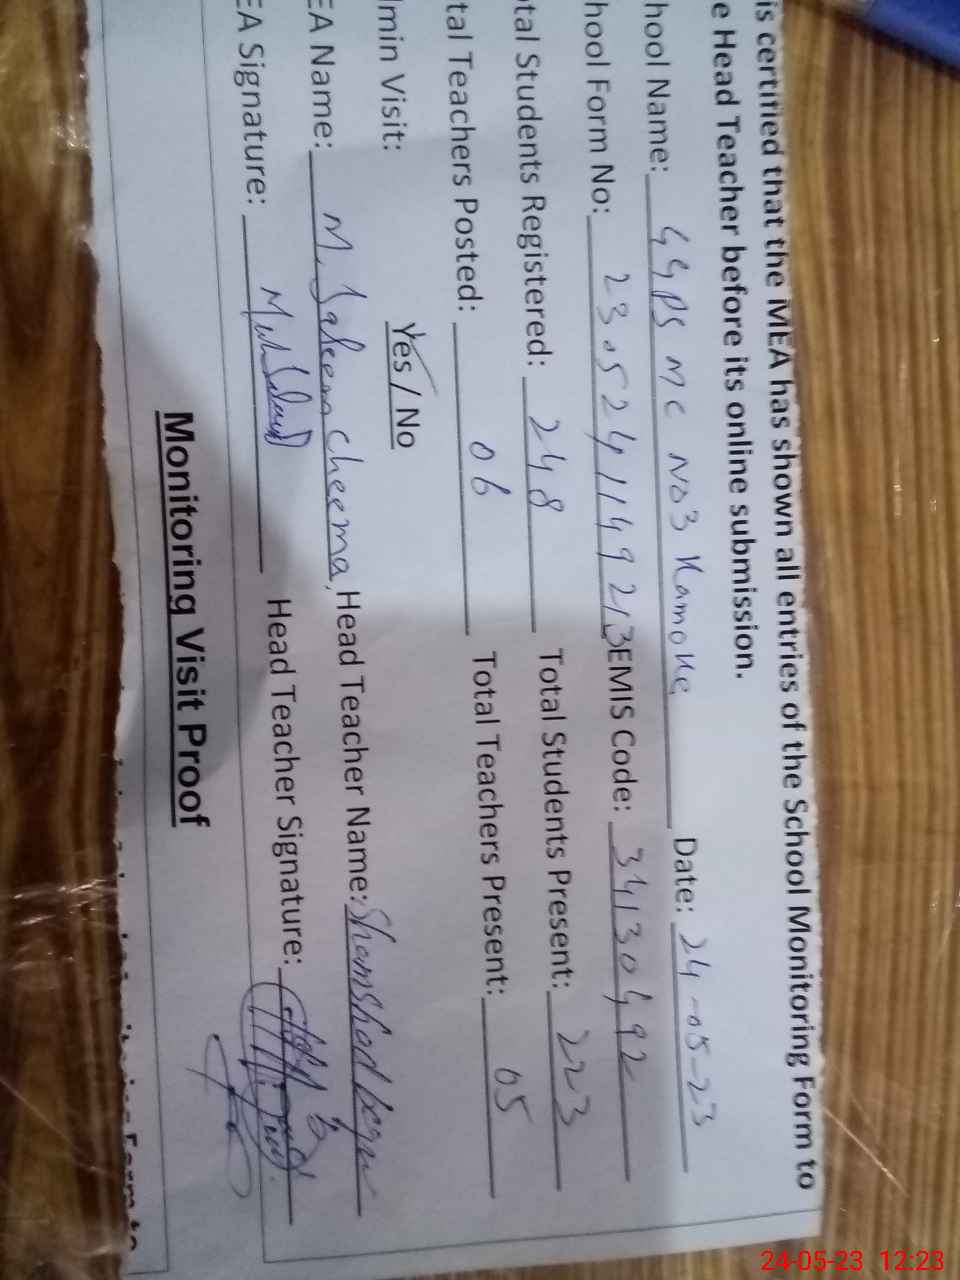 is certified that the MEA has shown all entries of the School Monitoring Form to
e Head Teacher before its online submission.
hool Name: GGPS MC NO3 Kamoke Date: 24-05-23
hool Form No: 2305241149213 EMIS Code: 34130492
tal Students Registered: 248 Total Students Present: 223
tal Teachers Posted: 06 Total Teachers Present: 05
lmin Visit: Yes / No
EA Name: M. Saleem Cheema, Head Teacher Name: Shamshad
EA Signature: Head Teacher Signature:
Monitoring Visit Proof
24-05-23 12:23